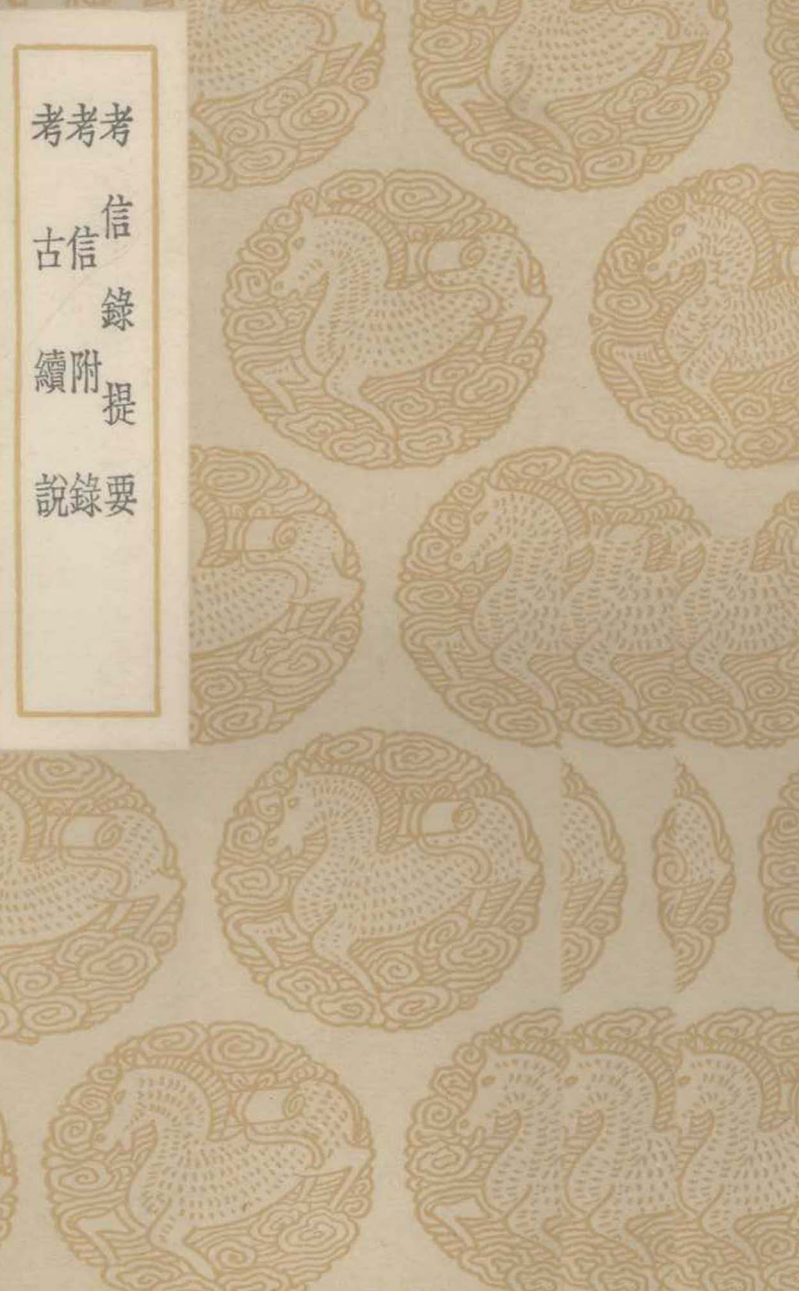 考信錄提要
考信附錄
考古續說